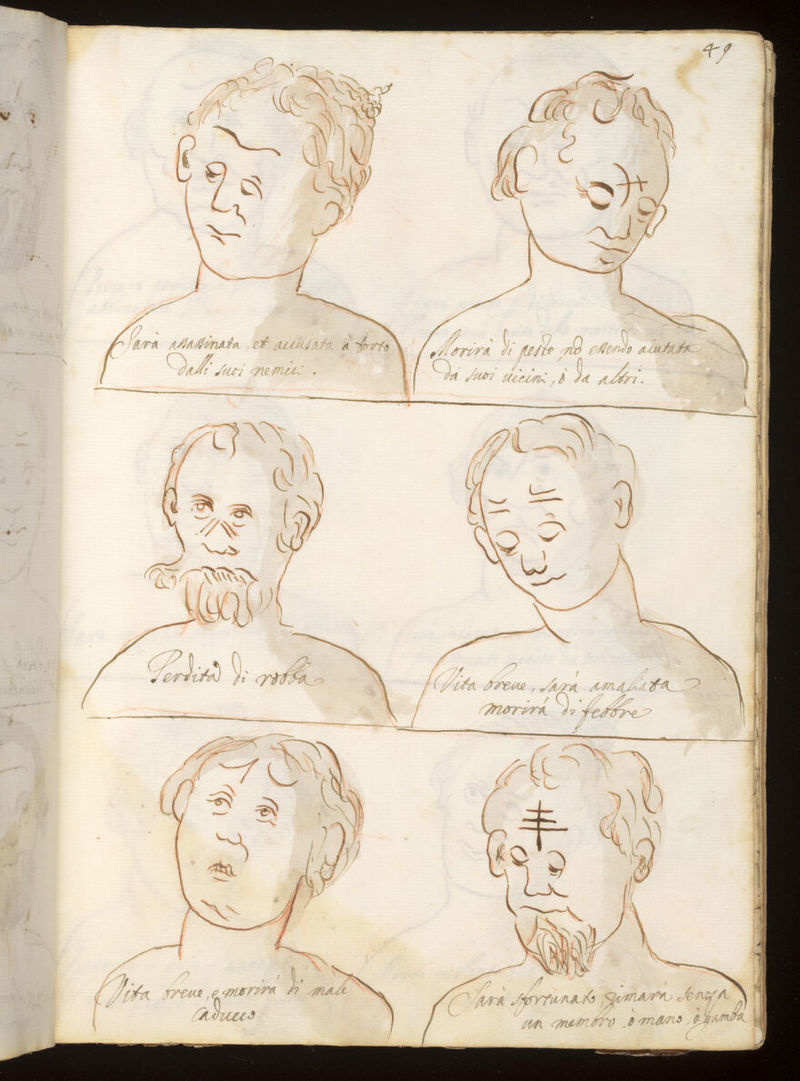 49
Sarà assassinata, et accusata à torto
dalli suoi nemici.
Morirà di peste, nõ essendo aiutata
dà suoi vicini, ò da altri.
Perdita di robba
Vita breue, sarà amaliata
morirà di febbre
Vita breue, e morirà di male
Caducco
Sarà sfortunato, rimarà senza
un membro ò mano, ò gamba